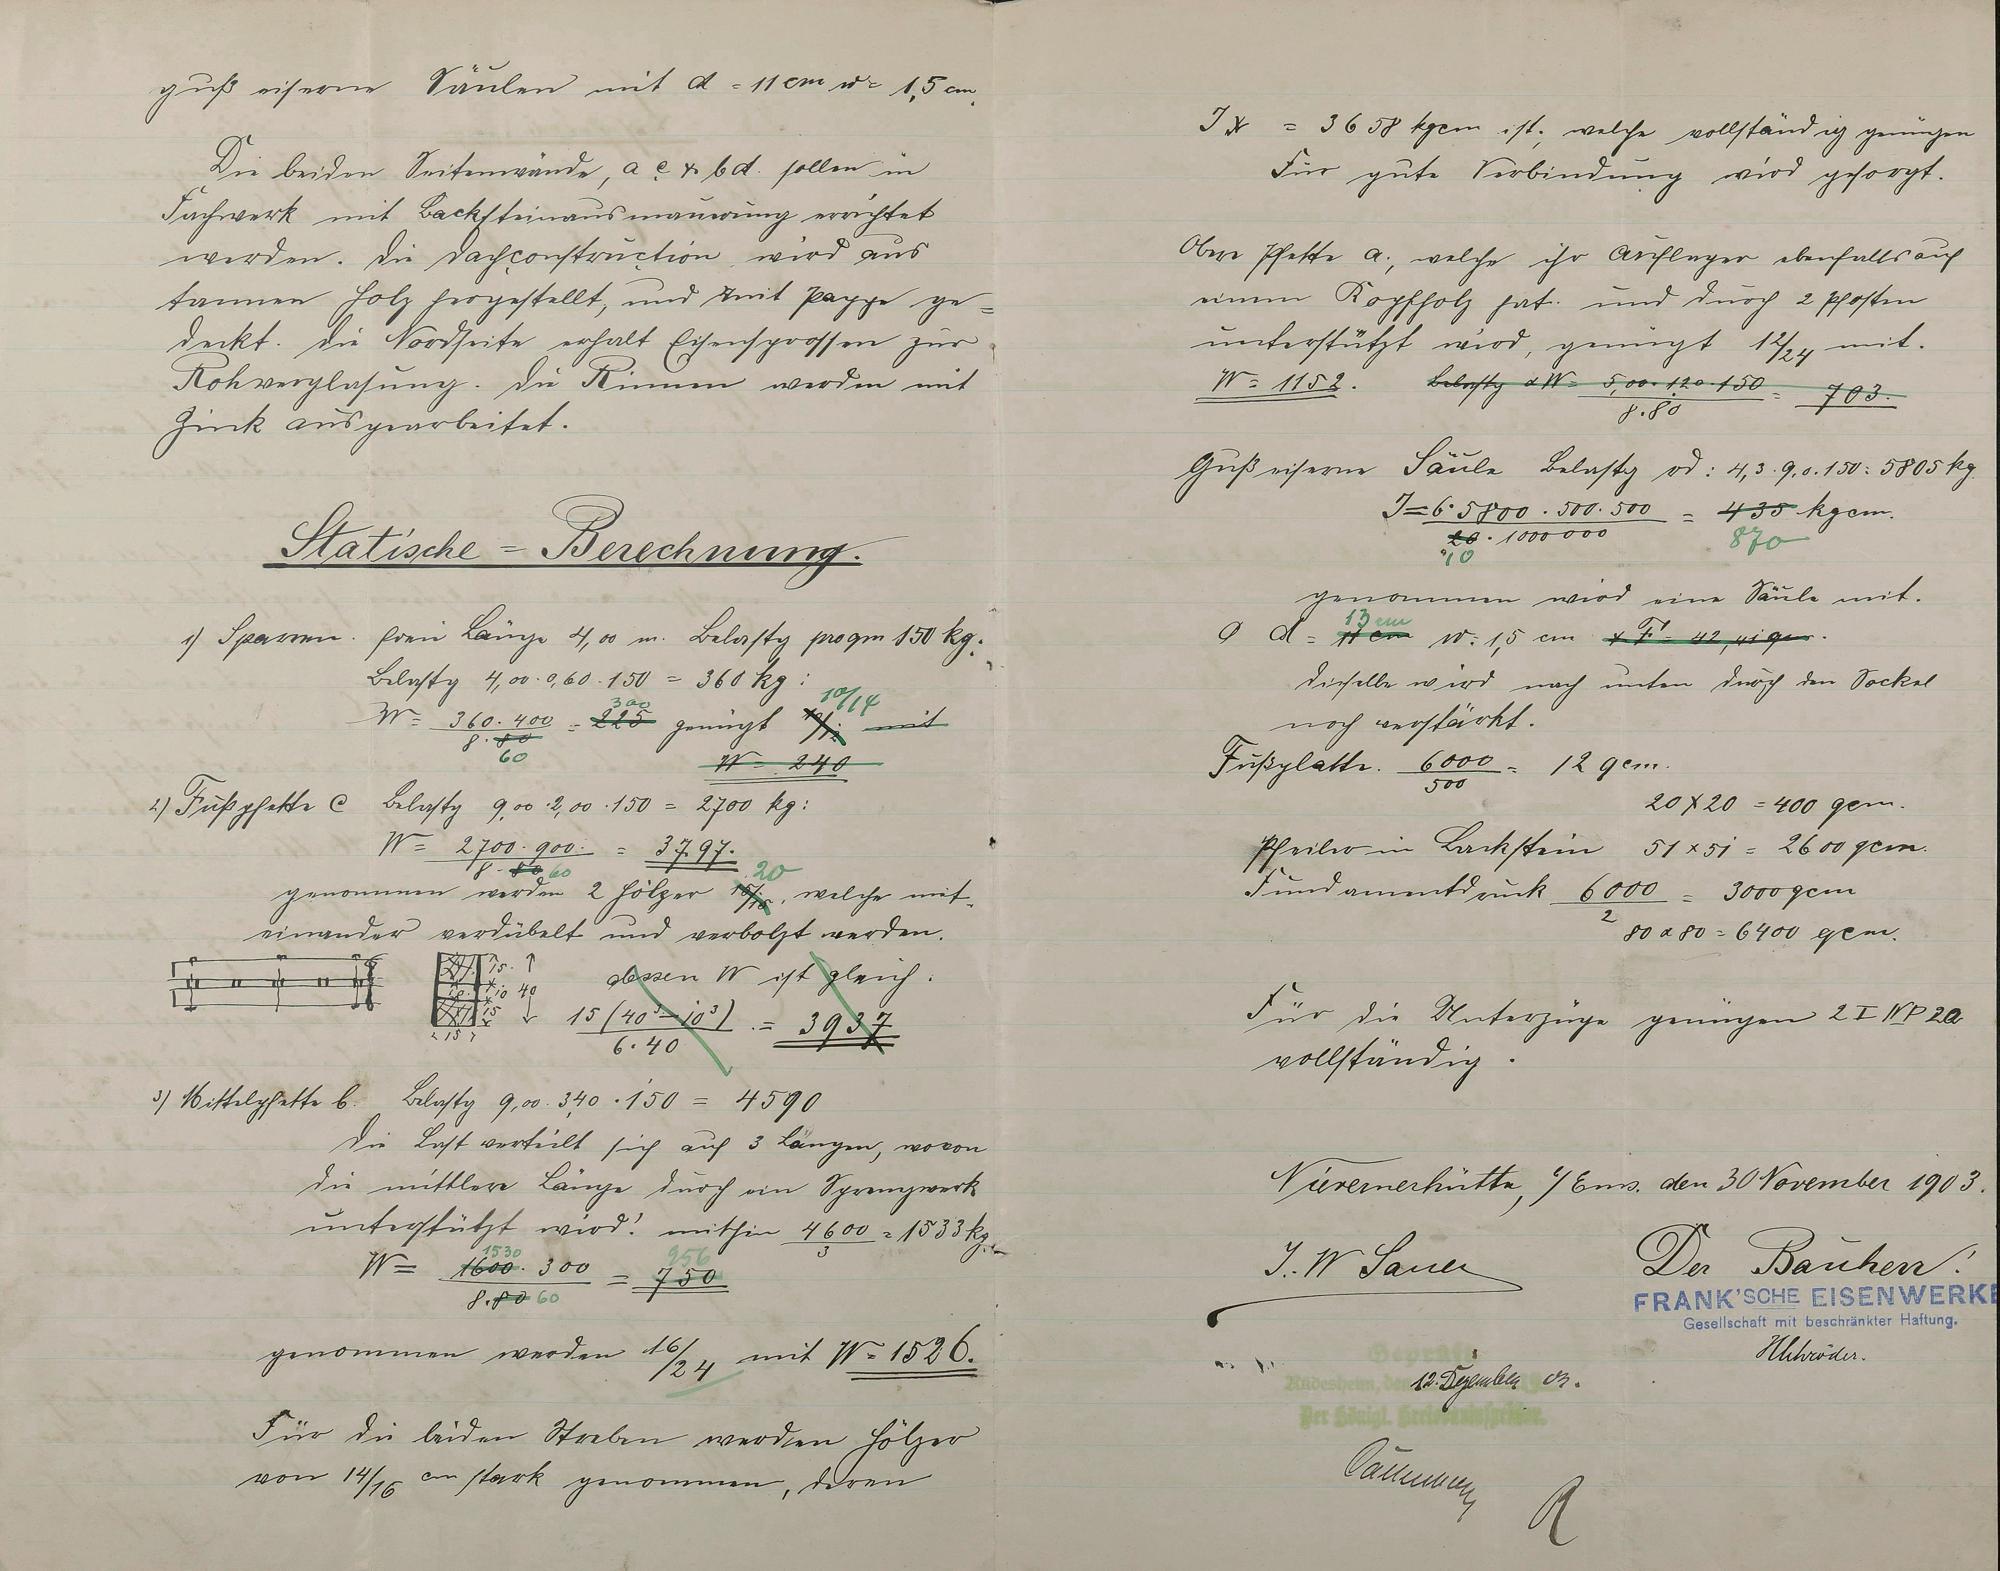 guß eiserne Säulen mit d = 11 cm w = 1,5 cm.
Die beiden Seitenwände, a c & b d. sollen in
Fachwerk mit Backsteinausmauerung errichtet
werden. Die Dachconstruction wird aus
tannen Holz hergestellt, und mit Pappe ge=
deckt. Die Nordseite erhalt Eisensprossen zur
Rohverglasung. Die Rinnen werden mit
Zink ausgearbeitet.
Statische = Berechnung.
1) Sparren. freie Länge 4,00 m. Belastg pro qm 150 kg.
Belastg 4,00 · 0,60 · 150 = 360 kg:
300 10/14
W = 360 · 400 / 8 · 80 = 225 genügt 10/12 mit
60 W = 240
2) Fußpfette C Belastg 9,00 · 2,00 · 150 = 2700 kg:
W = 2700 · 900 / 8 · 80 = 3797.
60 20
genommen werden 2 Hölzer 15/15, welche mit-
einander verdübelt und verbolzt werden.
15 10 15 40 15
dessen W ist gleich:
15 (40³ – 10³) / 6 · 40 = 3937
3) Mittelpfette b. Belastg 9,00 · 3,40 · 150 = 4590
Die Last verteilt sich auf 3 Längen, wovon
die mittlere Länge durch ein Sprengwerk
unterstützt wird! mithin 4600 / 3 = 1533 kg.
1530 956
W = 1600 · 300 / 8 · 80 = 750
60
genommen werden 16/24 mit W = 1526.
Für die beiden Streben werden Hölzer
von 14/16 cm stark genommen, deren
J x = 3658 kgcm ist; welche vollständig genügen
Für gute Verbindung wird gesorgt.
Obere Pfette a., welche ihr Auflager ebenfalls auf
einem Kopfholz hat. und durch 2 Pfosten
unterstützt wird, genügt 12/24 mit.
W = 1152. Belastg W = 5,00 · 120 · 150 / 8 · 80 = 703.
Guß eiserne Säule Belastg rd: 4,3 · 9,0 · 150 = 5805 kg
J = 6 · 5800 · 500 · 500 / 20 · 1000000 = 435 kgcm.
10 870
genommen wird eine Säule mit.
13 cm
d = 11 cm w = 1,5 cm F = 42,41 qcm.
dieselbe wird nach unten durch den Sockel
noch verstärkt.
Fußplatte. 6000 / 500 = 12 qcm.
20 × 20 = 400 qcm.
Pfeiler in Backstein 51 × 51 = 2600 qcm.
Fundamentdruck 6000 / 2 = 3000 qcm
80 × 80 = 6400 qcm.
Für die Unterzüge genügen 2 I NP 20
vollständig.
Nievernerhütte, b/ Ems. den 30 November 1903.
J. W Sauer
Der Bauherr!
FRANK'SCHE EISENWERKE
Gesellschaft mit beschränkter Haftung.
HSchröder.
Geprüft
Rüdesheim, den 12. Dezember 03.
Der Königl. Kreisbauinspektor.